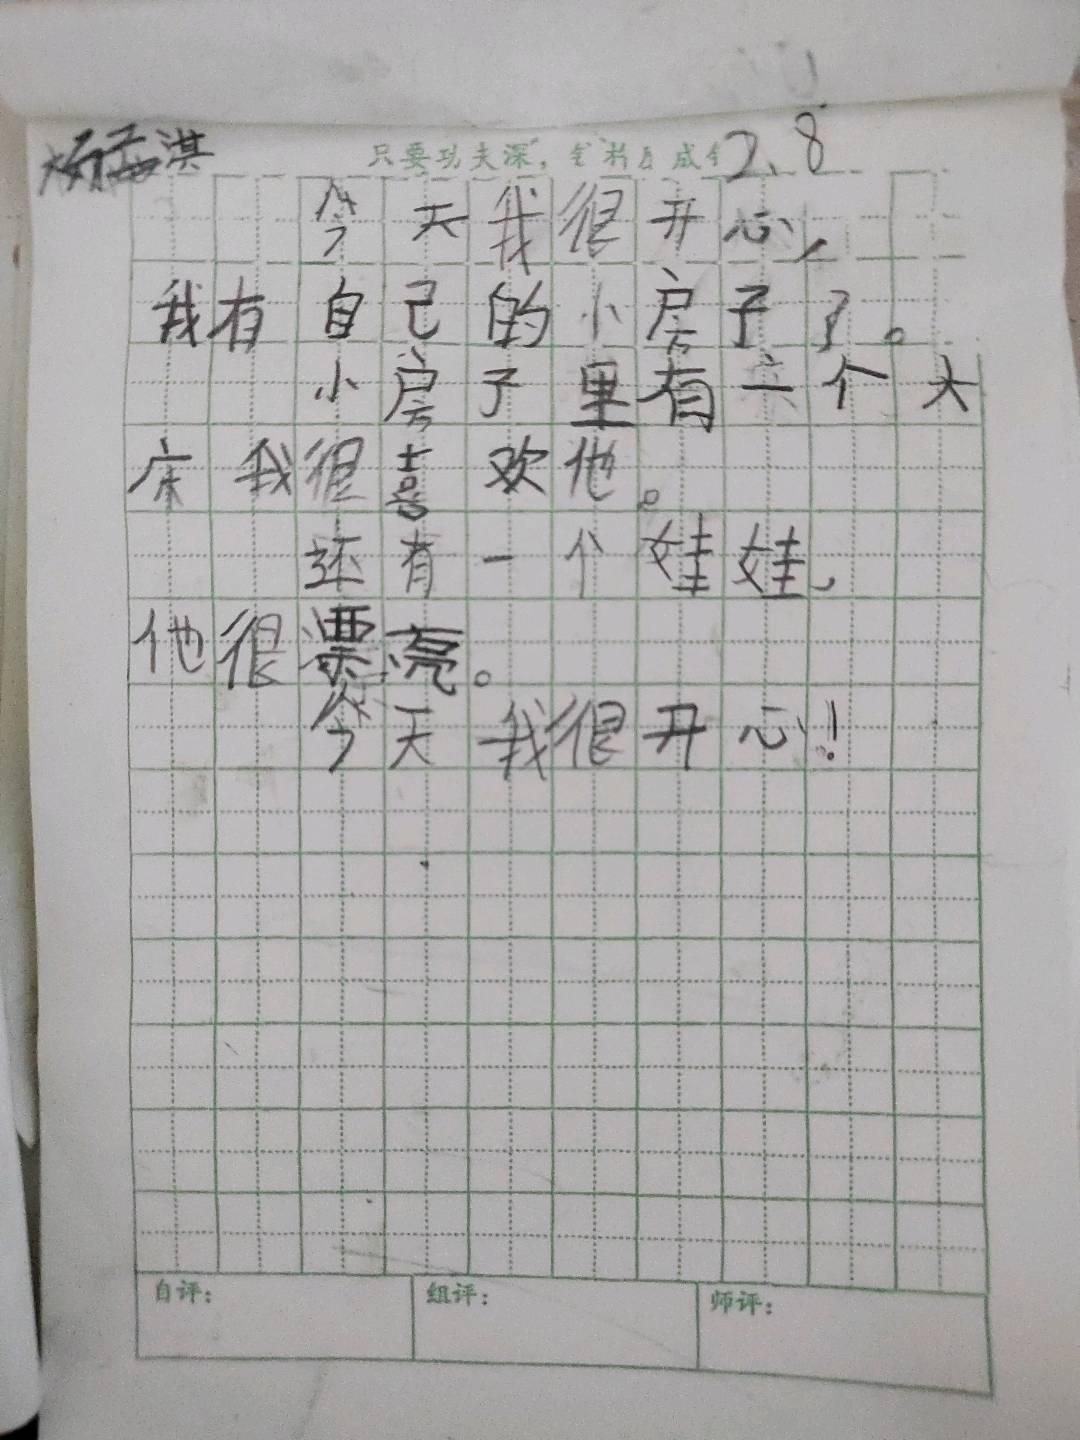 洪
只要功夫深, 2.8
今天我很开心,
我有自己的小房子了。
小房子里有一个大
床我很喜欢他。
还有一个娃娃,
他很漂亮。
今天我很开心!
自评: 组评: 师评: